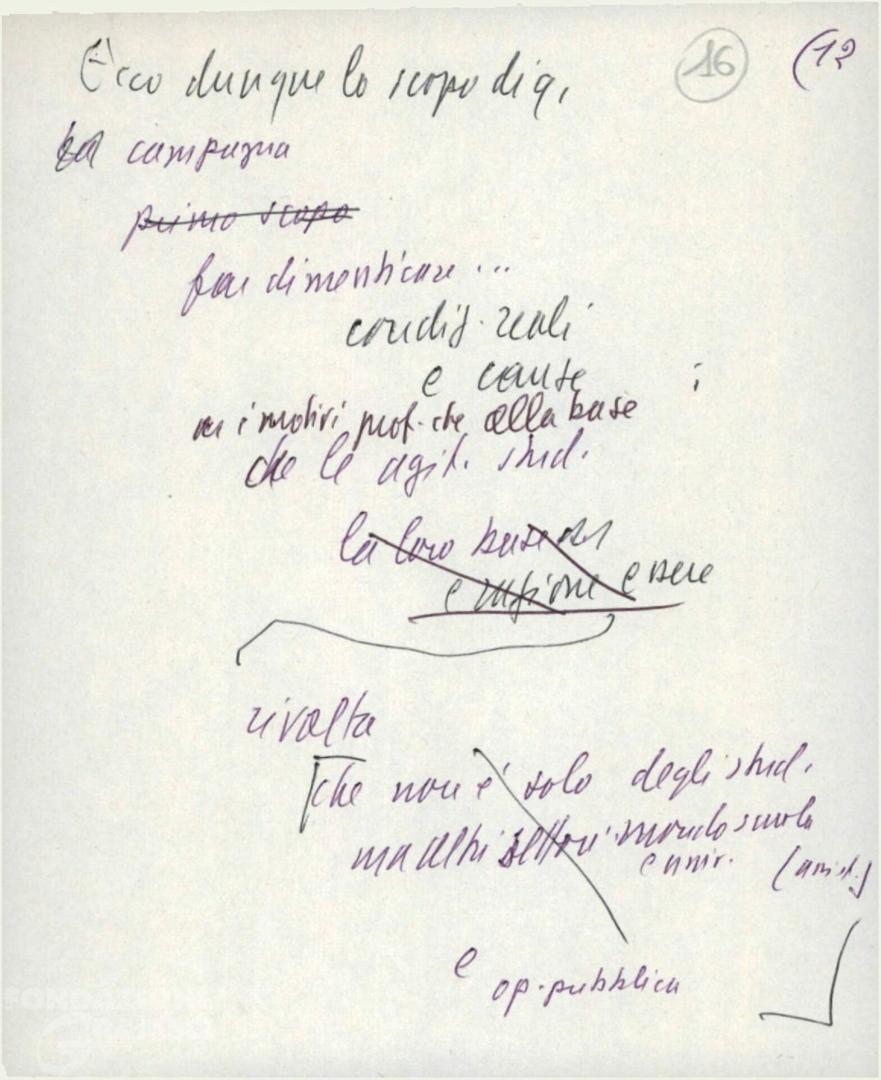 Ecco dunque lo scopo di q.
16
(12
la campagna
primo scopo
far dimenticare...
condiz. reali
e cause
i motivi prof. che alla base
che le agit. stud.
la loro base
e ragione essere
rivolta
che non è solo degli stud.
ma altri settori mondo scuola
e univ.
e
op. pubblica